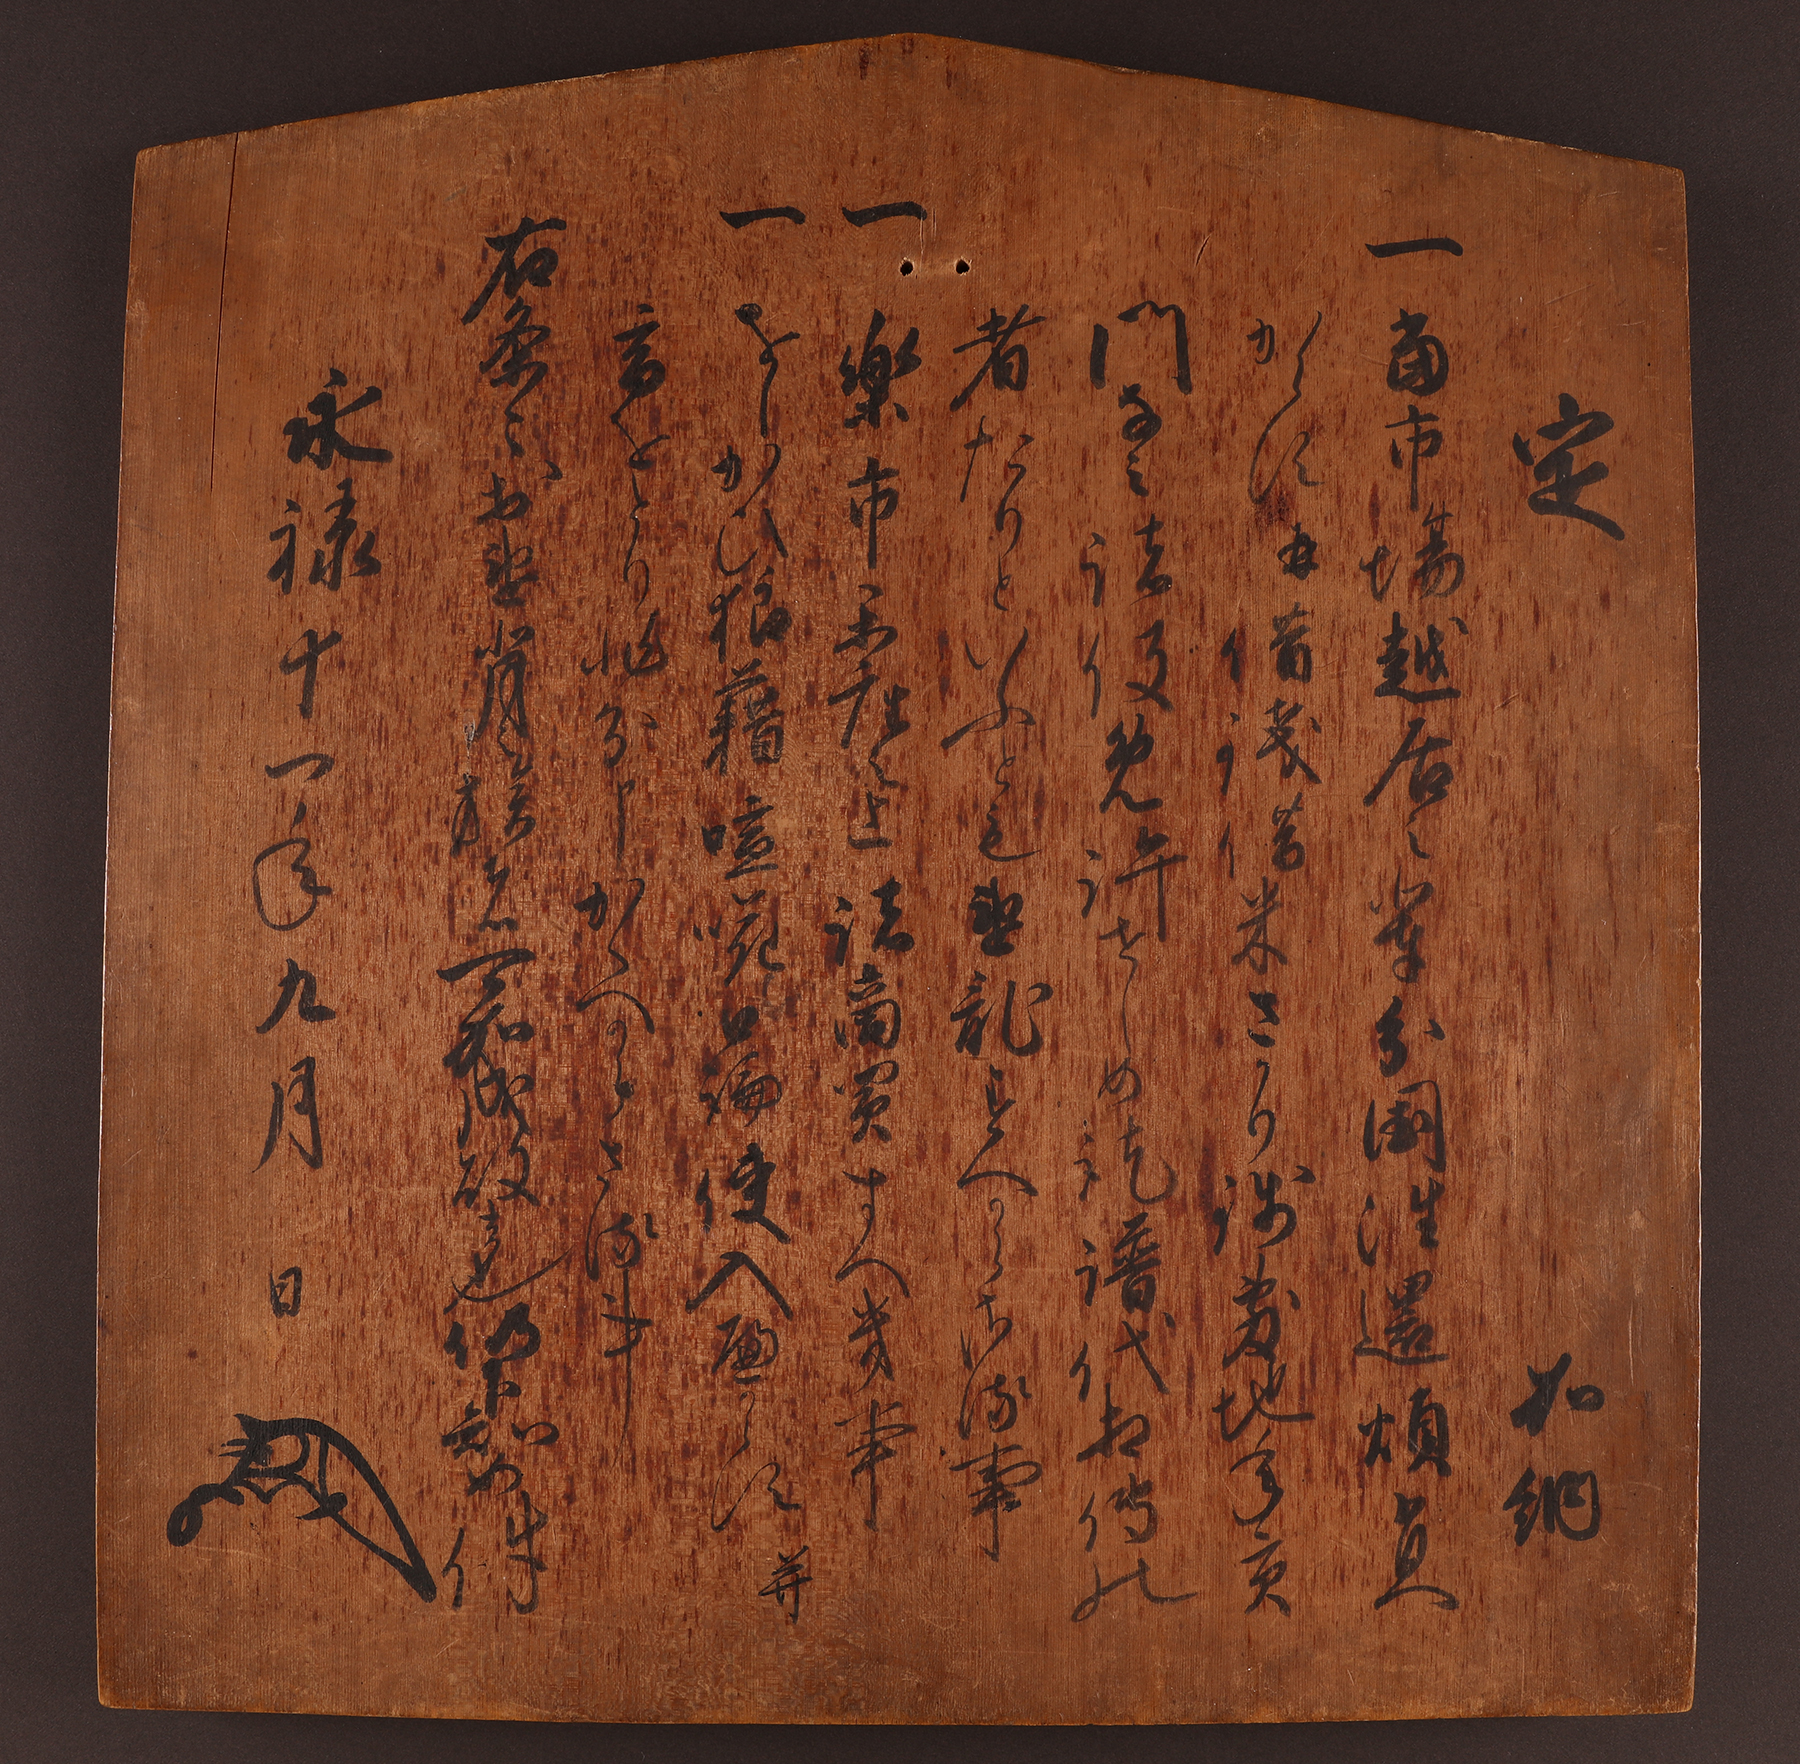 定　　加納
一当市場越居之輩分国往還煩有へ
からす并借銭借米さかり銭敷地年貢
門なミ諸役免許せしめ訖譜代相伝の
者たりといふとも違乱すへからさる事
一楽市楽座之上諸商買すへき事
一をしかひ狼藉喧嘩口論使入へからす并
宿をとり非分申かくへからさる事
右条々於違背之族者可加成敗者也仍下知如件
永禄十一年九月　日